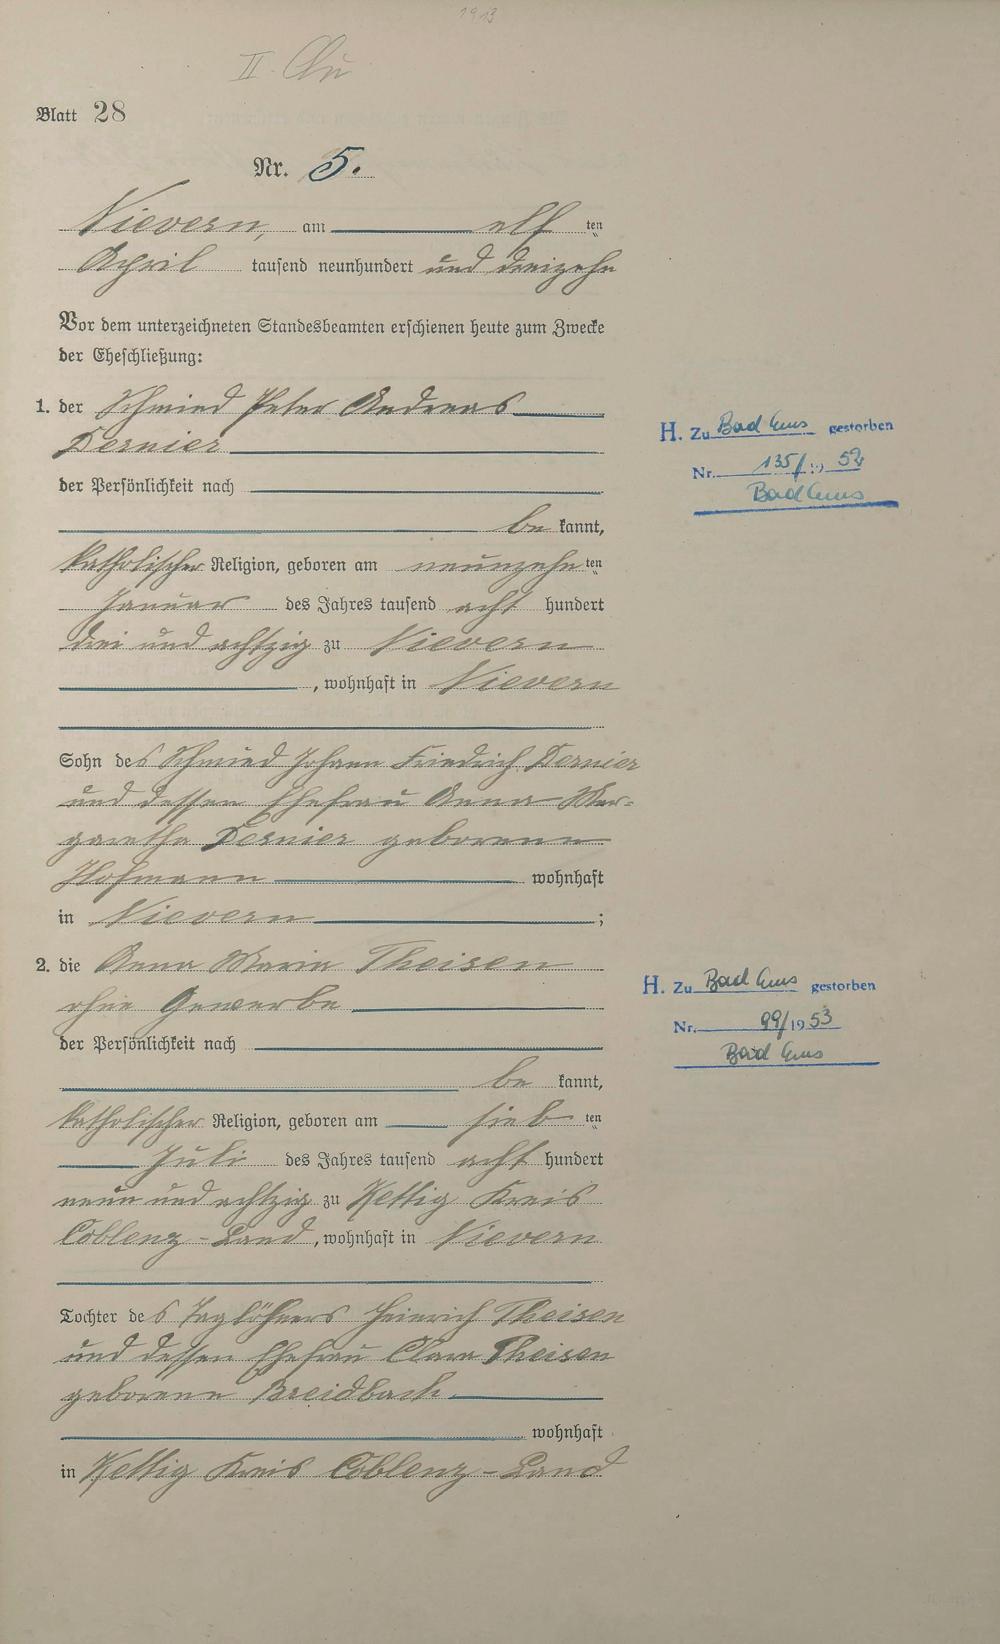 1913
II.
Blatt 28
Nr. 5.
Nievern, am elf ten
April tausend neunhundert und dreizehn
Vor dem unterzeichneten Standesbeamten erschienen heute zum Zwecke
der Eheschließung:
1. der Schmied Peter Andreas
Dernier
der Persönlichkeit nach
be kannt,
katholischer Religion, geboren am neunzehn ten
Januar des Jahres tausend acht hundert
drei und achtzig zu Nievern
, wohnhaft in Nievern
Sohn des Schmied Johann Friedrich Dernier
und dessen Ehefrau Anna Mar-
garetha Dernier geborenen
Hofmann wohnhaft
in Nievern ;
2. die Anna Maria Theisen
ohne Gewerbe
der Persönlichkeit nach
be kannt,
katholischer Religion, geboren am sieb ten
Juli des Jahres tausend acht hundert
neun und achtzig zu Kettig Kreis
Coblenz-Land, wohnhaft in Nievern
Tochter des Taglöhners Heinrich Theisen
und dessen Ehefrau Clara Theisen
geborenen Breidbach
wohnhaft
in Kettig Kreis Coblenz-Land
H. Zu Bad Ems gestorben
Nr. 135/19 52
Bad Ems
H. Zu Bad Ems gestorben
Nr. 99/19 53
Bad Ems